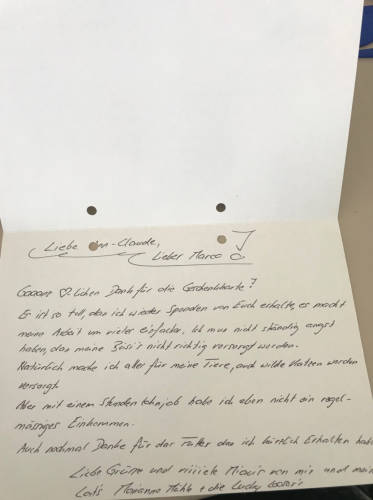 Liebe Ann-Claude,
Lieber Marco
Gaaanz ♡lichen Dank für die Geschenkkarte!
Er ist so toll, das ich wieder Spenden von Euch erhalte, es macht
meine Arbeit um vieler einfacher. Ich mus nicht ständig angst
haben, das meine Büsi's nicht richtig versorgt werden.
Natürlich mache ich aller für meine Tiere, auch wilde Katzen werden
versorgt.
Aber mit einem Stundenlohnjob habe ich eben nicht ein regel-
mässiges Einkommen.
Auch nochmal Danke für das Futter das ich kürzlich Erhalten
Liebe Grüsse und viiiele Miau's von mir und
Cat's Marianne + die Lucky